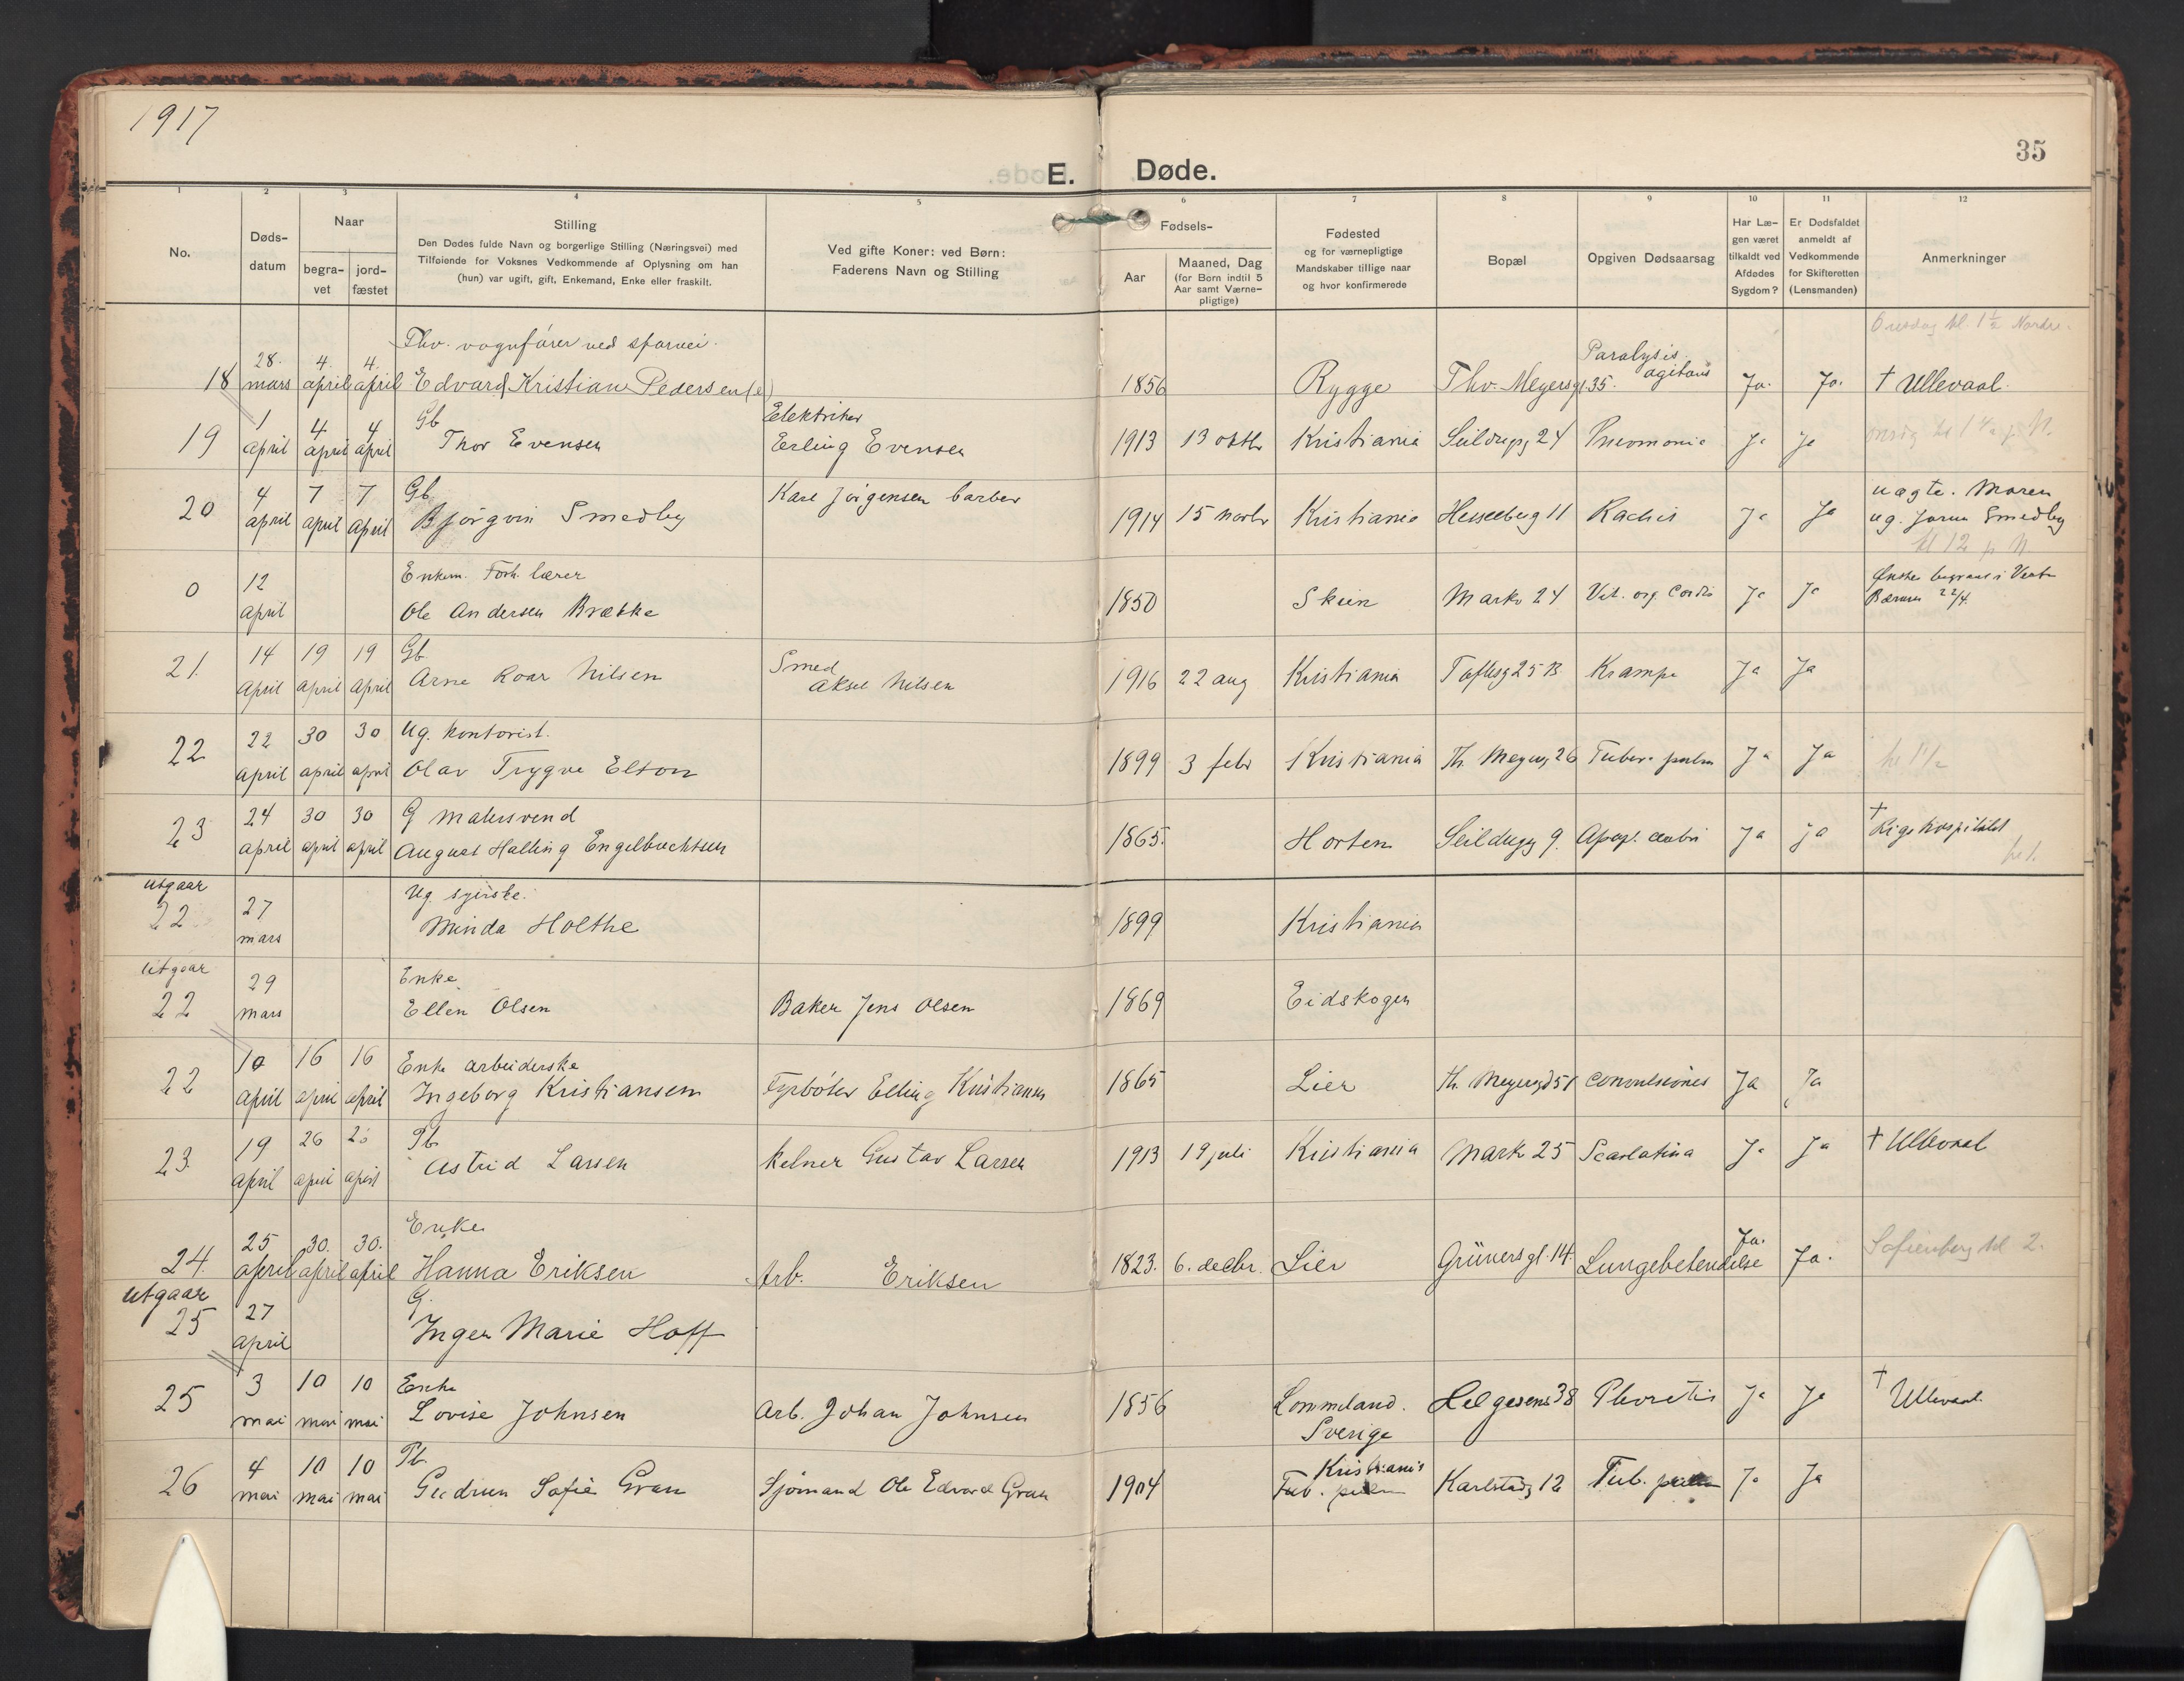 1917
35
E. Døde.
1 2 3 4 5 6 7 8 9 10 11 12
No.
Døds-
datum
Naar
begra-
vet
jord-
fæstet
Stilling
Den Dødes fulde Navn og borgerlige Stilling (Næringsvei) med
Tilføiende for Voksnes Vedkommende af Oplysning om han
(hun) var ugift, gift, Enkemand, Enke eller fraskilt.
Ved gifte Koner: ved Børn:
Faderens Navn og Stilling
Fødsels-
Aar
Maaned, Dag
(for Børn indtil 5
Aar samt Værne-
pligtige)
Fødested
og for værnepligtige
Mandskaber tillige naar
og hvor konfirmerede
Bopæl
Opgiven Dødsaarsag
Har Læ-
gen været
tilkaldt ved
Afdødes
Sygdom?
Er Dødsfaldet
anmeldt af
Vedkommende
for Skifteretten
(Lensmanden)
Anmerkninger
Fhv. vognfører ved sporvei. Onsdag kl. 1½ Nordre.
28. 4. 4. Paralysis
18 mars april april Edvard Kristian Pedersen (e) 1856 Rygge Thv. Meyersg. 35. agitans Ja. Ja. † Ullevaal.
1 4 4 Gb Elektriker
19 april april april Thor Evensen Erling Evensen 1913 13 oktbr Kristiania Seildugsg 24 Pneomonia Ja Ja
4 7 7 Gb Karl Jørgensen barber uægte. Moren
20 april april april Bjørgvin Smedby 1914 15 novbr Kristiania Hesselberg 11 Rachis Ja Ja ug. Smedby
kl 12 p N.
12 Enkem. Forh. lærer
0 april Ole Andersen Brække 1850 Skien Markv 24 Vit. org. Cordis Ja Ja Bærum 22/4.
14 19 19 Gb Smed
21. april april april Arne Roar Nilsen Aksel Nilsen 1916 22 aug Kristiania Toftesg 25 B Krampe Ja Ja
22 30 30 Ug. kontorist.
22 april april april Olav Trygve Elton 1899 3 febr Kristiania Th. Meyersg 26 Tuberc pulm Ja Ja kl 1½
24 30 30 G malersvend †
23 april april april August Halling Engelbrechtsen 1865. Horten Seildugsg 9. Apopl. cerebri Ja ja Rigshospitalet
kl 1.
utgaar 27 Ug. syerske.
22 mars Minda Holthe 1899 Kristiania
Utgaar 29 Enke
22 mars Ellen Olsen Baker Jens Olsen 1869 Eidskogen
10 16 16 Enke arbeiderske
22 april april april Ingeborg Kristiansen Fyrbøter Elling Kristiansen 1865 Lier Th. Meyersgd 51 Convulsiones Ja Ja
19 26 26 Pb
23. april april april Astrid Larsen Kelner Gustav Larsen 1913 19 juli Kristiania Markv 25 Scarlatina Ja Ja † Ullevaal
25 30. 30. Enke Ja.
24. april april april Hanna Eriksen Arb. Eriksen 1823. 6. decbr. Lier Grünersgt. 14. Lungebetendelse Ja. Sofienberg kl 2.
Utgaar 27 G.
25 april Inger Marie Hoff
3 10 10 Enke †
25 mai mai mai Lovise Johnsen Arb. Johan Johnsen 1856 Lommeland. Helgesens 38 Plevretis Ja Ja Ullevaal.
Sverige
4 10 10 Pb. Kristiania
26 mai mai mai Gudrun Sofie Gran Sjømand Ole Edvard Gran 1904 Tub. pulm Karlstadg 12 Tub. pulm Ja Ja